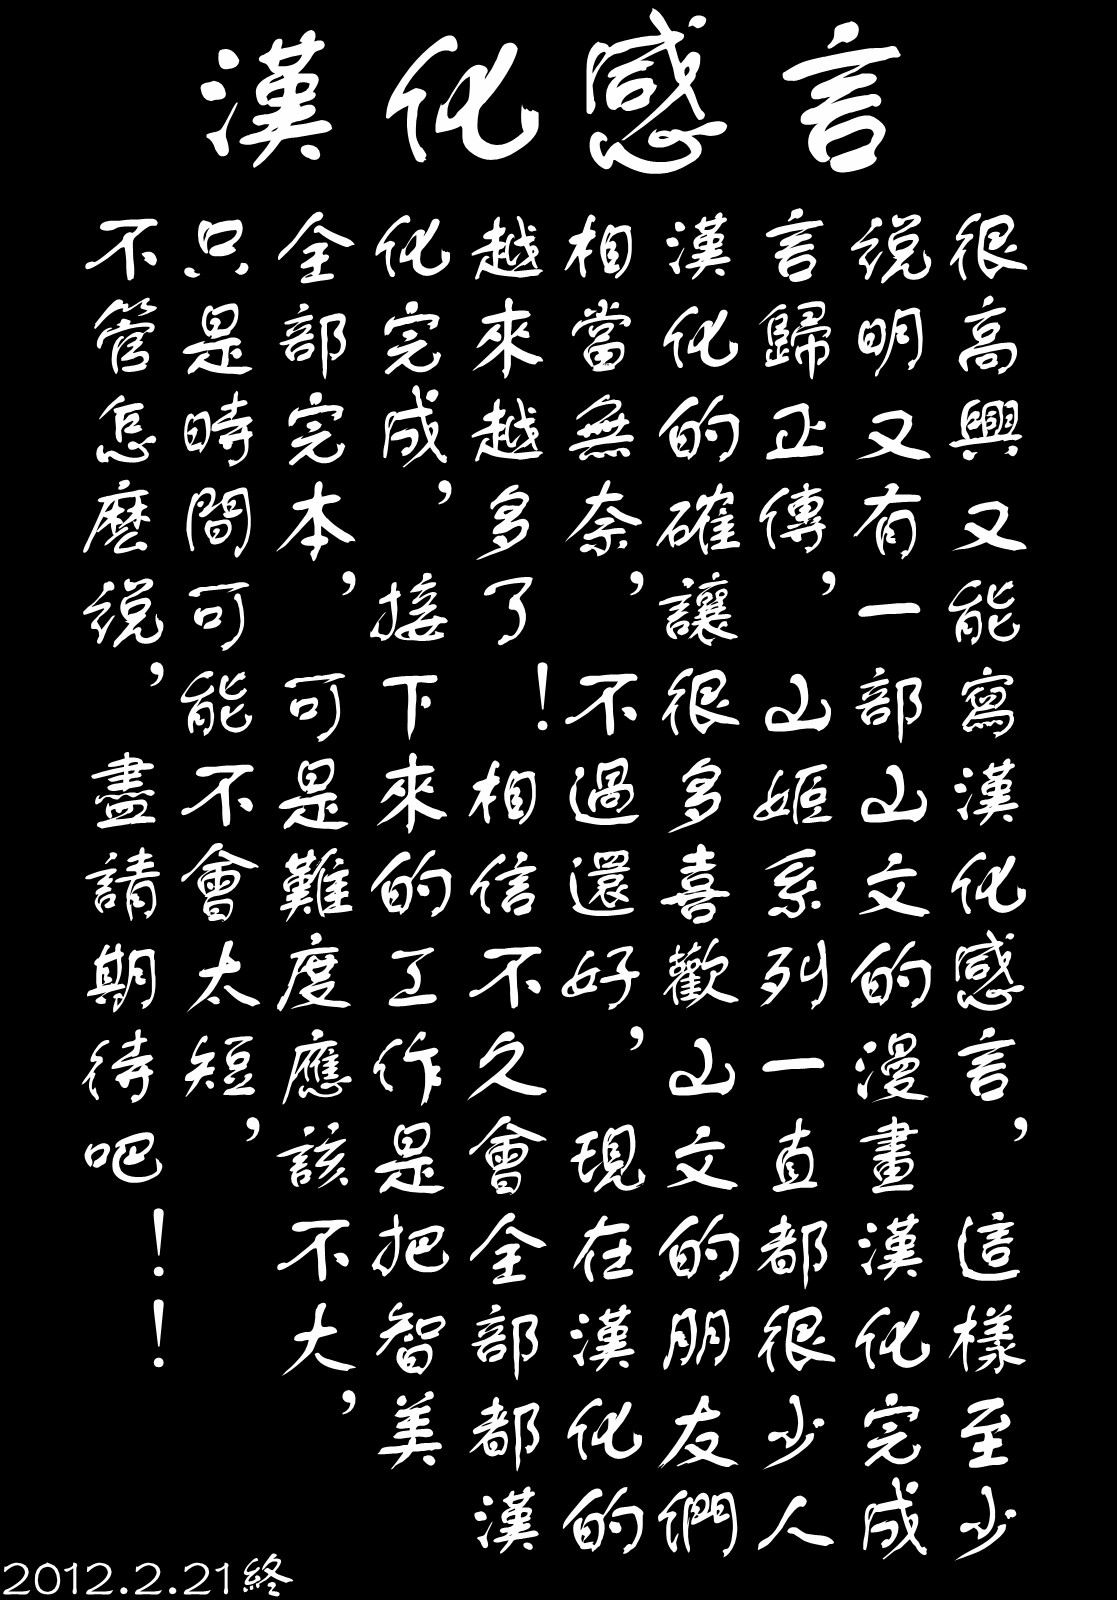 漢化感言
很高興又能寫漢化感言，這樣至少
説明又有一部山文的漫畫漢化完成
言歸正傳，山姬系列一直都很少人
漢化的確讓很多喜歡山文的朋友們
相當無奈，不過還好，現在漢化的
越來越多了！相信不久會全部都漢
化完成，接下來的工作是把智美
全部完本，可是難度應該不大，
只是時間可能不會太短，
不管怎麼説，盡請期待吧！！
2012.2.21終